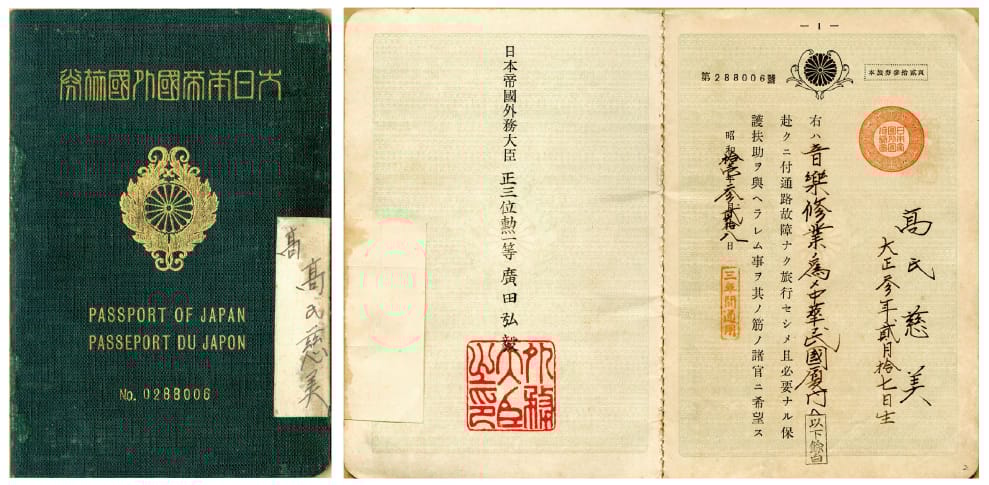 大日本帝國外國旅券
PASSPORT OF JAPAN
PASSEPORT DU JAPON
No. 0288006
高
高氏慈美
— 1 —
本旅券參拾貳頁
第288006號
高氏慈美
大正參年貳月拾七日生
右ハ音樂修業爲メ中華民國厦門ヘ
以下餘白
赴クニ付通路故障ナク旅行セシメ且必要ナル保
護扶助ヲ與ヘラレム事ヲ其ノ筋ノ諸官ニ希望ス
昭和拾壹年參月貳拾八日
三年間通用
日本帝國外務大臣 正三位勲一等 廣田弘毅
外務大臣之印